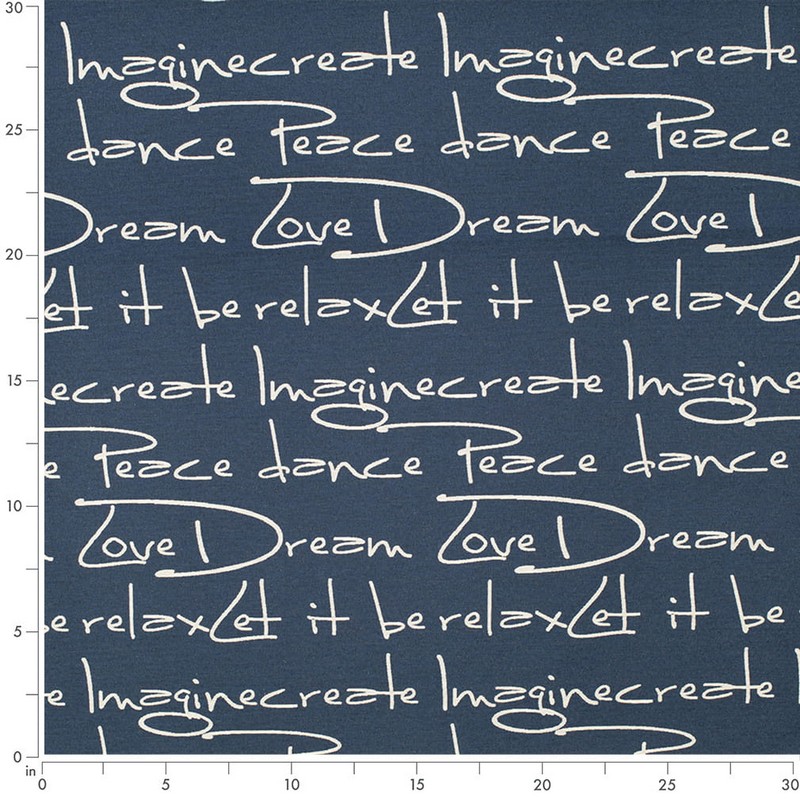 30
Imaginecreate Imaginecreate
25
dance Peace dance Peace
Dream Love Dream Love
20
Let it be relax Let it be relax Le
15
ecreate Imaginecreate Imagine
e Peace dance Peace dance
10
Love Dream Love Dream
5
be relax Let it be relax Let it be
e Imaginecreate Imaginecreate
0
in
0 5 10 15 20 25 30